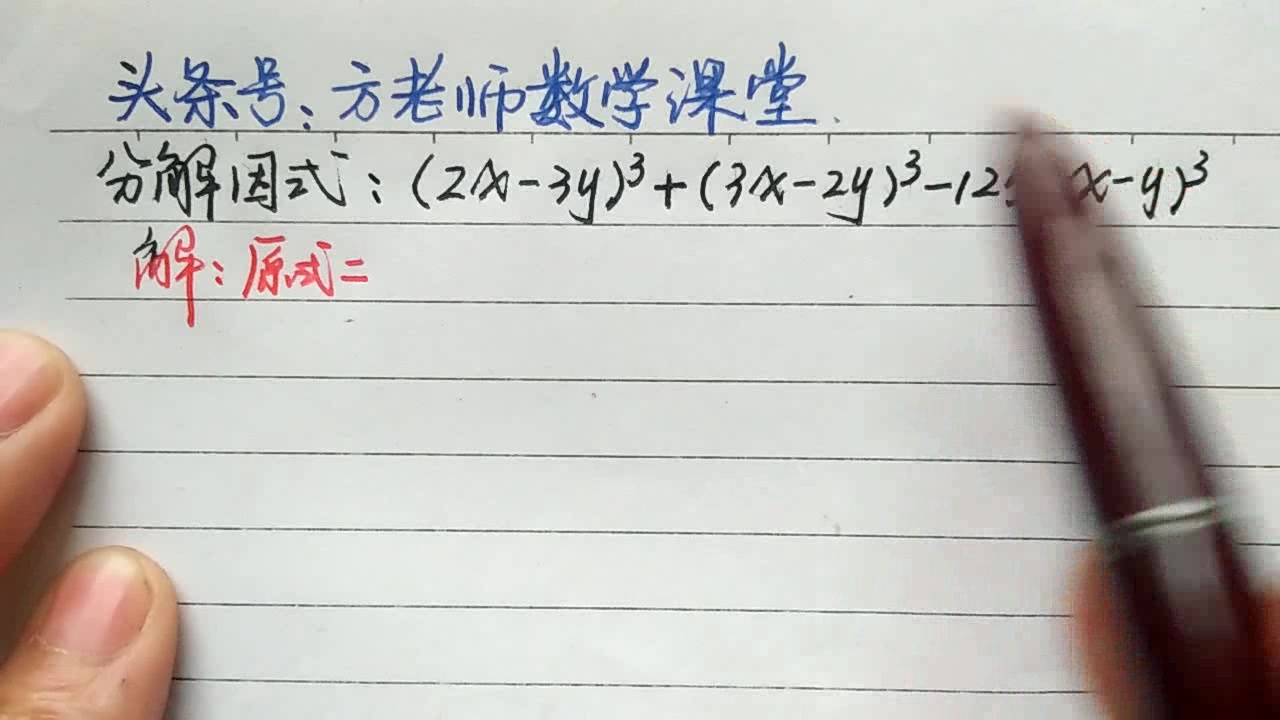 头条号：方老师数学课堂.
分解因式：(2x-3y)³+(3x-2y)³-12 x-y)³
解：原式=